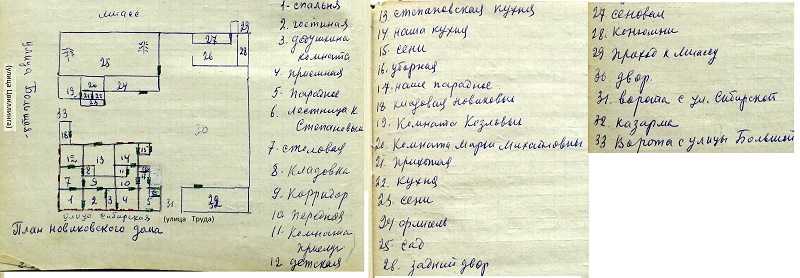 миасс
29
27
28
26
25
20
24
19
21
22
23
улица Большая
(улица Цвиллинга)
33
18
30
15
12
13
14
8
11
7
9
10
1
2
3
4
5
31
32
улица Сибирская
(улица Труда)
План новиковского дома
1- спальня
2. гостиная
3. дедушкина комната
4. приемная
5. Парадное
6. лестница к Степановым
7. столовая
8. Кладовка
9. Корридор
10. Передняя
11. Комната прислуг
12. детская
13. степановская кухня
14. наша кухня
15. сени
16. уборная
17. наше парадное
18. кладовая новиковых
19. Комната Козловых
20. Комната Марьи Михайловны
21. Прихожая
22. Кухня
23. сени
24. флигель
25. сад
26. задний двор
27. сеновал
28. Конюшни
29. Проход к Миассу
30. двор.
31. ворота с ул. Сибирской
32. казарма
33. Ворота с улицы Большой